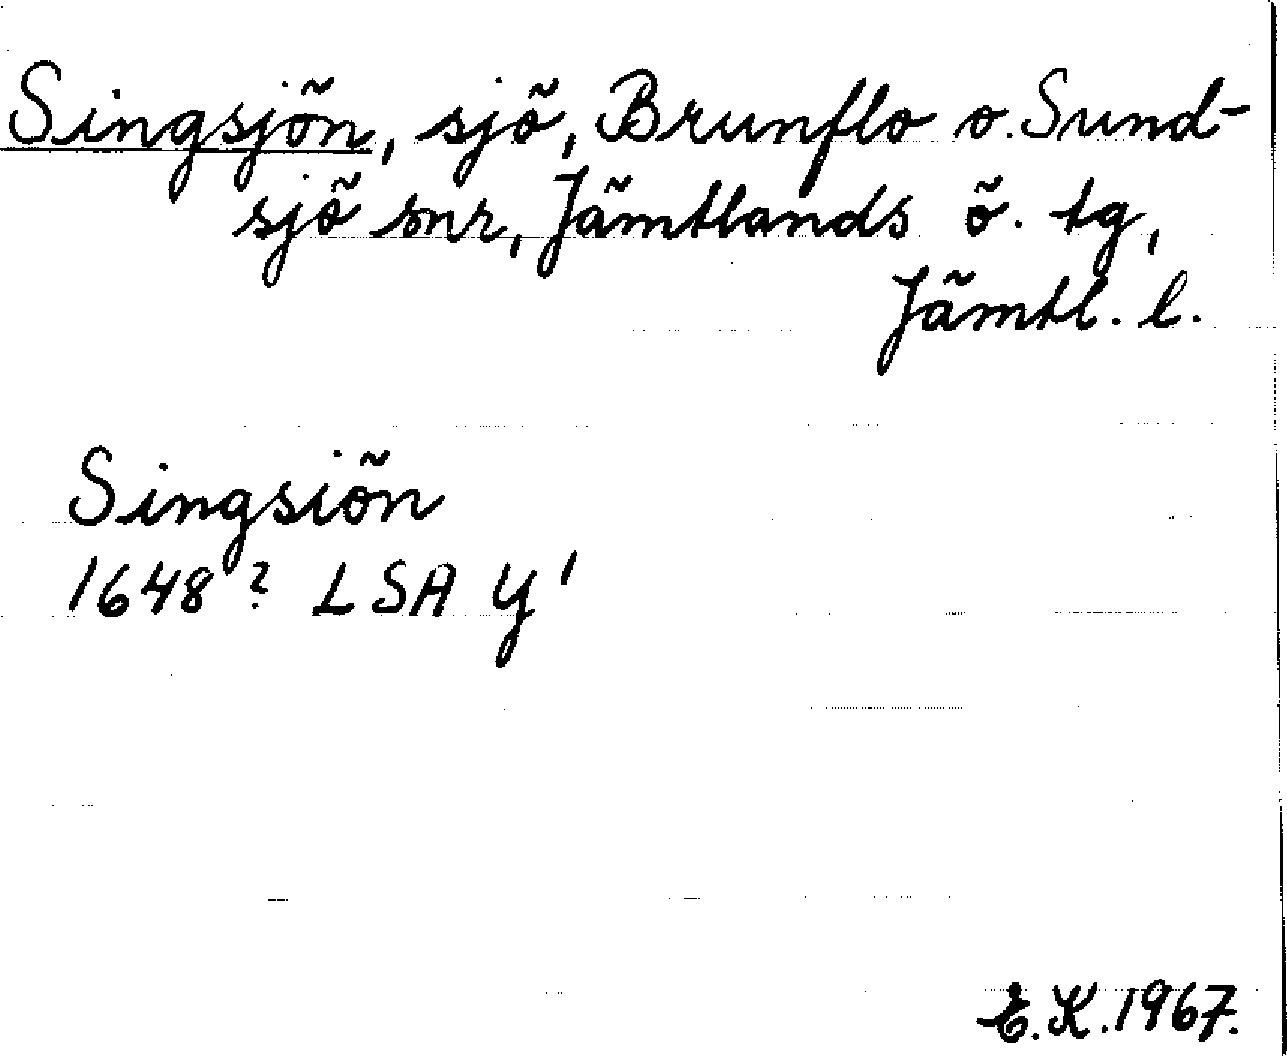 Singsjön, sjö, Brunflo o. Sund-
sjö snr, Jämtlands ö. tg,
Jämtl. l.
Singsiön
1648? LSA Y'
E.K. 1967.